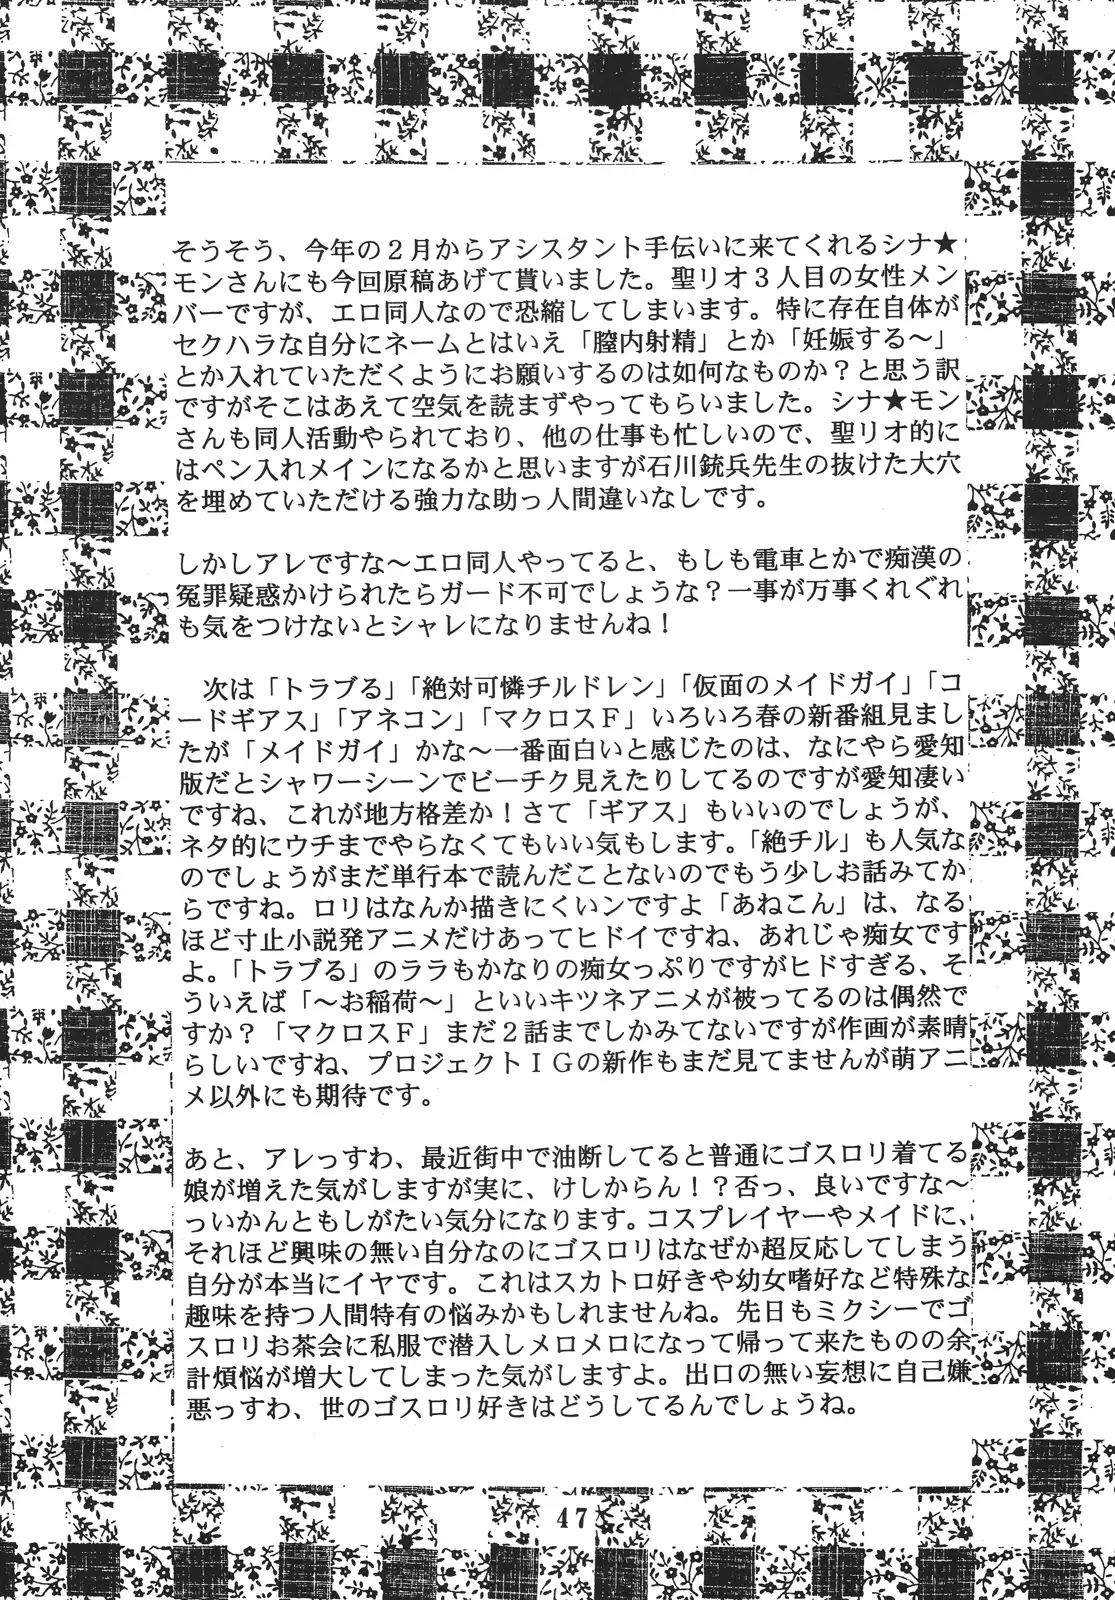 そうそう、今年の２月からアシスタント手伝いに来てくれるシナ★
モンさんにも今回原稿あげて貰いました。聖リオ３人目の女性メン
バーですが、エロ同人なので恐縮してしまいます。特に存在自体が
セクハラな自分にネームとはいえ「膣内射精」とか「妊娠する～」
とか入れていただくようにお願いするのは如何なものか？と思う訳
ですがそこはあえて空気を読まずやってもらいました。シナ★モン
さんも同人活動やられており、他の仕事も忙しいので、聖リオ的に
はペン入れメインになるかと思いますが石川銃兵先生の抜けた大穴
を埋めていただける強力な助っ人間違いなしです。
しかしアレですな～エロ同人やってると、もしも電車とかで痴漢の
冤罪疑惑かけられたらガード不可でしょうな？一事が万事くれぐれ
も気をつけないとシャレになりませんね！
次は「トラブる」「絶対可憐チルドレン」「仮面のメイドガイ」「コ
ードギアス」「アネコン」「マクロスＦ」いろいろ春の新番組見まし
たが「メイドガイ」かな～一番面白いと感じたのは、なにやら愛知
版だとシャワーシーンでビーチク見えたりしてるのですが愛知凄い
ですね、これが地方格差か！さて「ギアス」もいいのでしょうが、
ネタ的にウチまでやらなくてもいい気もします。「絶チル」も人気な
のでしょうがまだ単行本で読んだことないのでもう少しお話みてか
らですね。ロリはなんか描きにくいンですよ「あねこん」は、なる
ほど寸止小説発アニメだけあってヒドイですね、あれじゃ痴女です
よ。「トラブる」のララもかなりの痴女っぷりですがヒドすぎる、そ
ういえば「～お稲荷～」といいキツネアニメが被ってるのは偶然で
すか？「マクロスＦ」まだ２話までしかみてないですが作画が素晴
らしいですね、プロジェクトＩＧの新作もまだ見てませんが萌アニ
メ以外にも期待です。
あと、アレっすわ、最近街中で油断してると普通にゴスロリ着てる
娘が増えた気がしますが実に、けしからん！？否っ、良いですな～
っいかんともしがたい気分になります。コスプレイヤーやメイドに、
それほど興味の無い自分なのにゴスロリはなぜか超反応してしまう
自分が本当にイヤです。これはスカトロ好きや幼女嗜好など特殊な
趣味を持つ人間特有の悩みかもしれませんね。先日もミクシーでゴ
スロリお茶会に私服で潜入しメロメロになって帰って来たものの余
計煩悩が増大してしまった気がしますよ。出口の無い妄想に自己嫌
悪っすわ、世のゴスロリ好きはどうしてるんでしょうね。
47